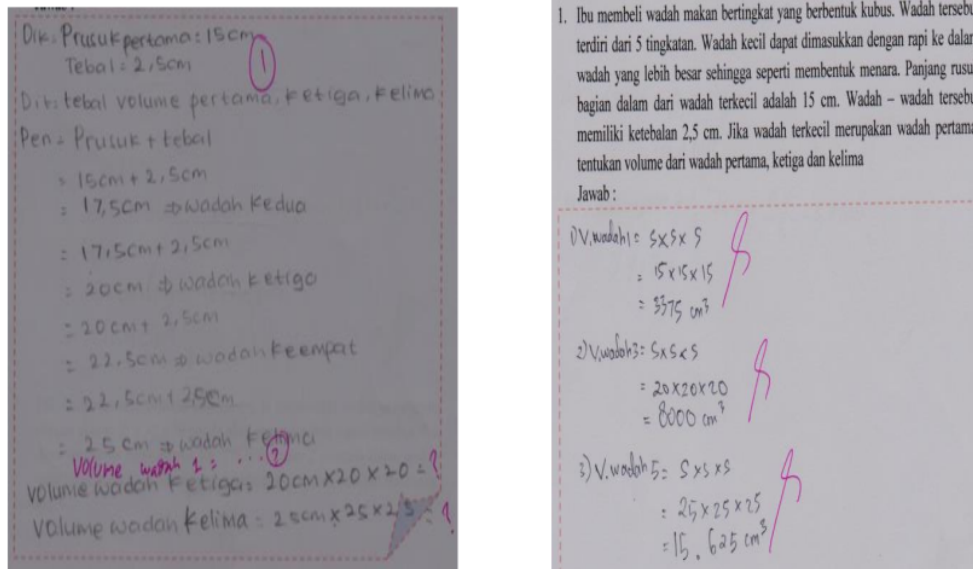 Dik: Prusuk pertama: 15cm
Tebal: 2,5cm
1
Dit: tebal volume pertama, ketiga, kelima
Pen = Prusuk + tebal
= 15cm + 2,5cm
= 17,5cm ⇒ wadah kedua
= 17,5cm + 2,5cm
= 20cm ⇒ wadah ketiga
= 20cm + 2,5cm
= 22,5cm ⇒ wadah keempat
= 22,5cm + 2,5cm
= 25cm ⇒ wadah kelima
Volume wadah 1 = ... 2
volume wadah ketiga = 20cm x 20 x 20 = ?
Volume wadah kelima = 25cm x 25 x 25 = ?
1. Ibu membeli wadah makan bertingkat yang berbentuk kubus. Wadah tersebu
terdiri dari 5 tingkatan. Wadah kecil dapat dimasukkan dengan rapi ke dalam
wadah yang lebih besar sehingga seperti membentuk menara. Panjang rusu
bagian dalam dari wadah terkecil adalah 15 cm. Wadah – wadah tersebu
memiliki ketebalan 2,5 cm. Jika wadah terkecil merupakan wadah pertama
tentukan volume dari wadah pertama, ketiga dan kelima
Jawab :
1) V.wadah1 = S x S x S
= 15 x 15 x 15
= 3375 cm³
2) V.wadah3 = S x S x S
= 20 x 20 x 20
= 8000 cm³
3) V.wadah 5 = S x S x S
= 25 x 25 x 25
= 15.625 cm³